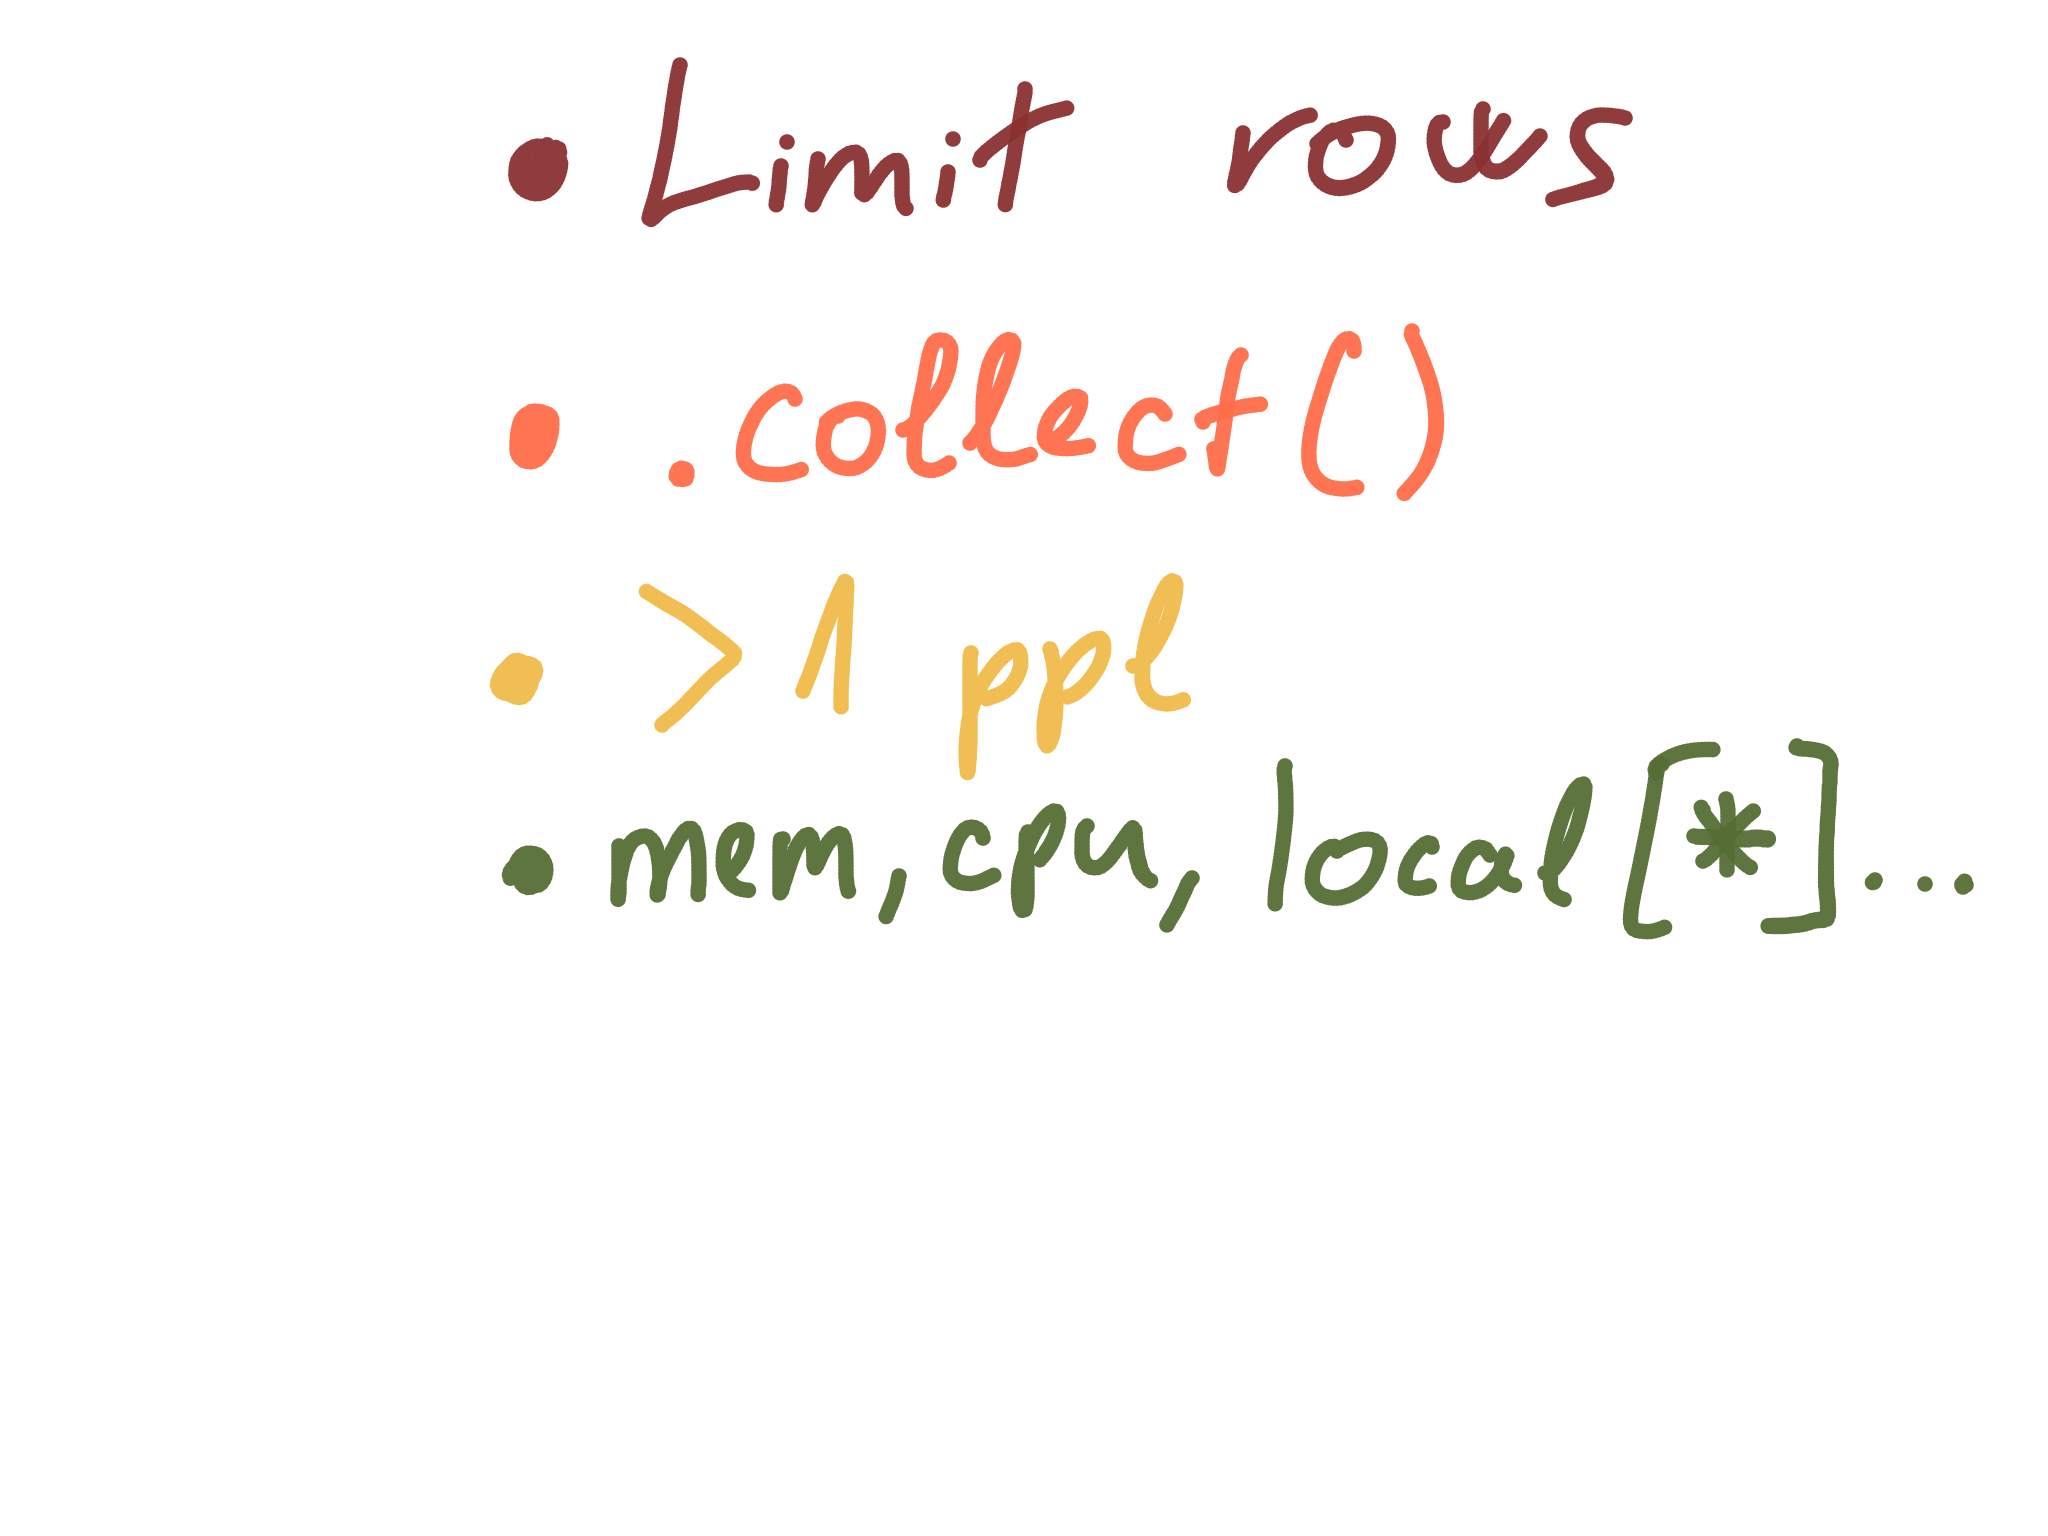 • Limit rows
• .collect()
• >1 ppl
• mem, cpu, local[*]...